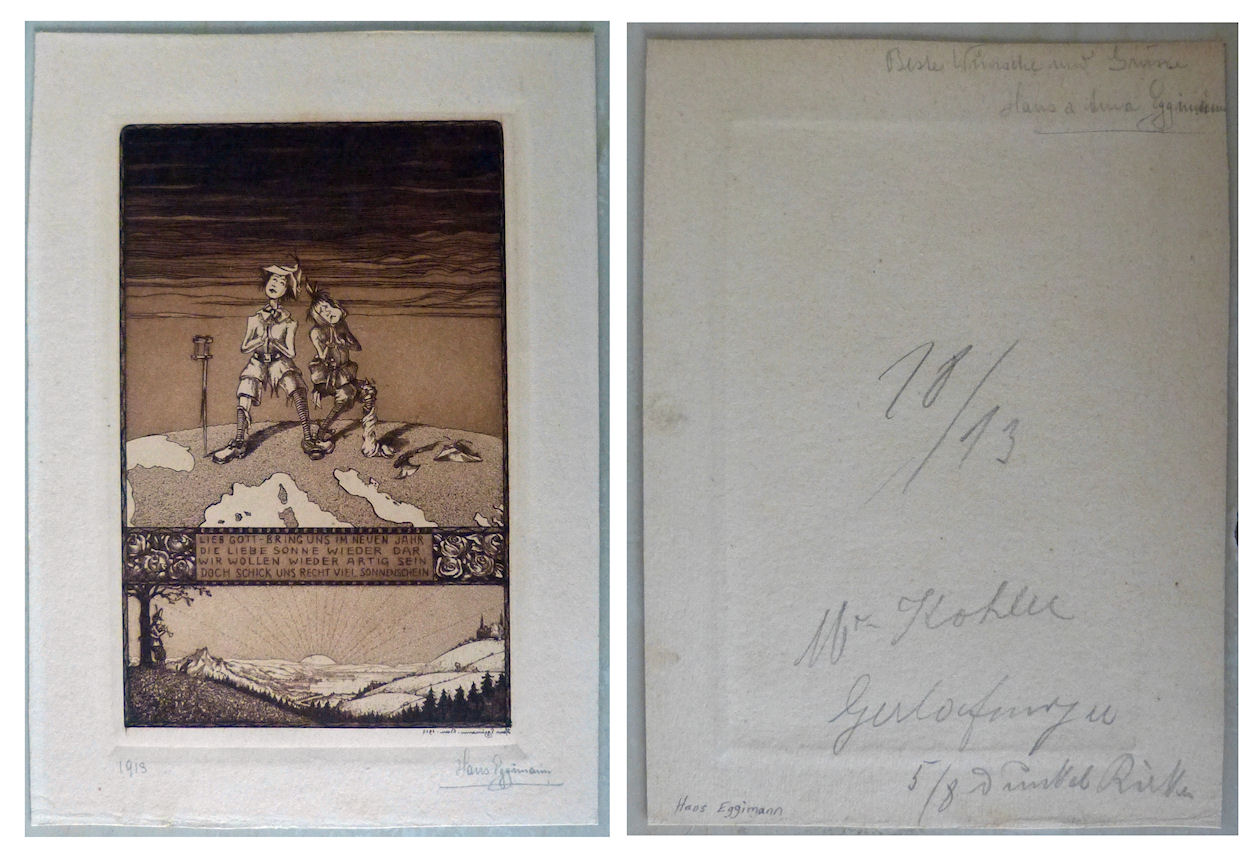 LIEB GOTT - BRING UNS IM NEUEN JAHR
DIE LIEBE SONNE WIEDER DAR
WIR WOLLEN WIEDER ARTIG SEIN
DOCH SCHICK UNS RECHT VIEL SONNENSCHEIN
1913
Hans Eggimann
Beste Wünsche und Grüsse
Hans Eggimann
18/13
Kohler
Gerlafingen
5/8 Dunkel
Hans Eggimann